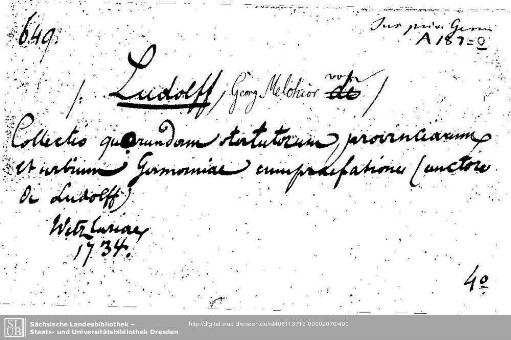 649.
Jus priv. Germ.
A 187=0
/: Ludolff, Georg Melchior von de /
Collectio quorundam statutorum provinciarum
et urbium Germaniae cum praefatione (auctore
de Ludolff)
Wetzlariae
1734.
4o
SLUB
Sächsische Landesbibliothek –
Staats- und Universitätsbibliothek Dresden